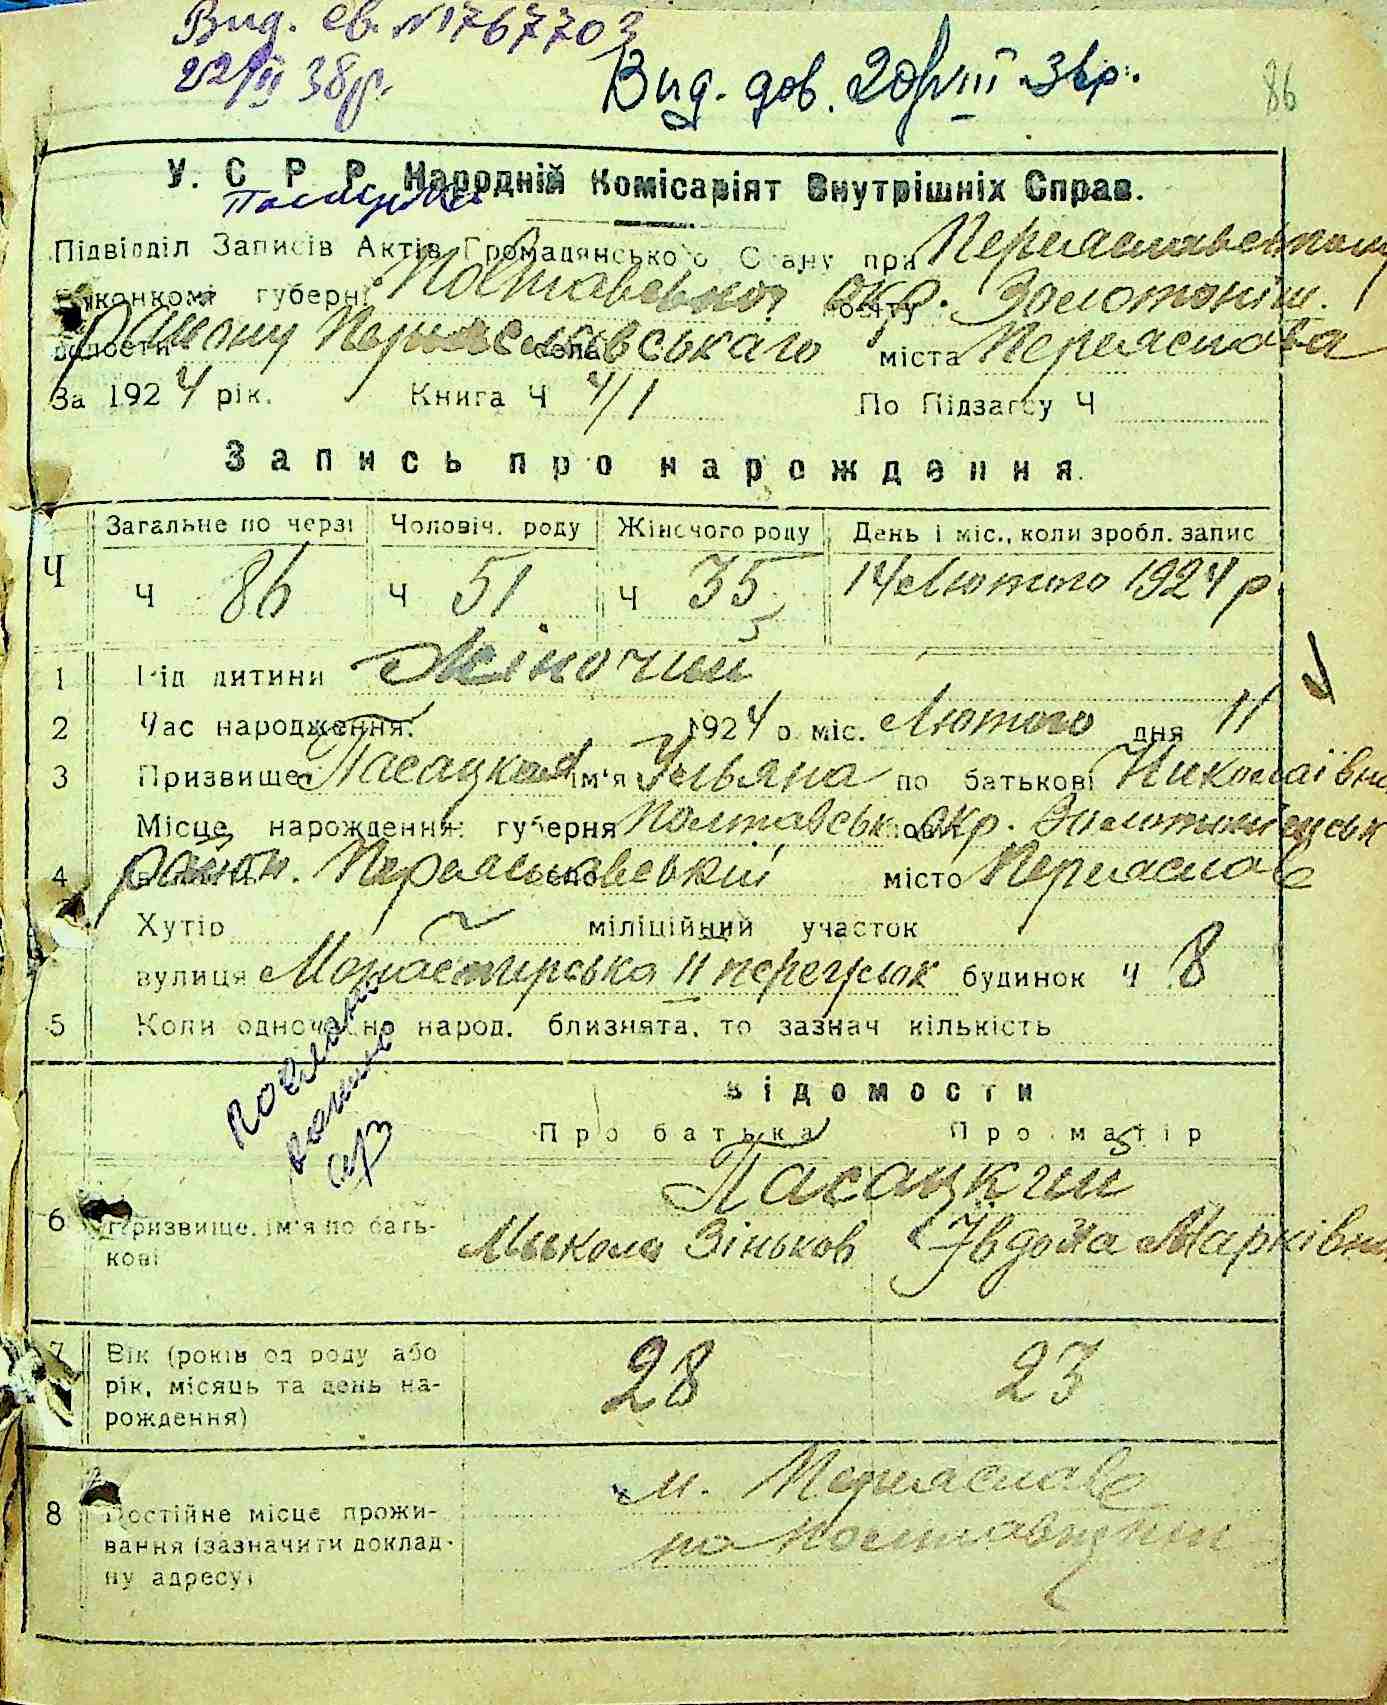 Вид. св. №1767703
22/II 38р.
Вид. дов. 20/VIII 36р.
86
У. С Р Р. Народній Комісаріят Внутрішніх Справ.
Підвідділ Записів Актів Громадянського Стану при Переяславському
Виконкомі губерні Полтавської окр. повіту Золотоніш.
волости району Переяславського села міста Переяслова
За 1924 рік. Книга Ч 4/1 По Підзагсу Ч
Запись про нарождення.
Загальне по черзі Чоловіч. роду Жіночого роду День і міс., коли зробл. запис
Ч Ч 86 Ч 51 Ч 35 14 Лютого 1924 р.
1 Рід дитини Жіночий
2 Час народження: 1924 р. міс. Лютого дня 11
3 Призвище Пасацкая ім'я Ульяна по батькові Николаївна
Місце нарождення: губерня Полтавськ. окр. Золотонішськ
4 район. Переяславський село місто Переяслав
Хутір міліційний участок
вулиця Монастирська II переулок будинок Ч 8
5 Коли одночасно народ. близнята, то зазнач кількість
Відомости
Про батька Про матір
Пасацкий
6 Призвище, ім'я по батькові Микола Зіньков Івдоха Марківна
7 Вік (років од роду або 28 23
рік, місяць та день на-
рождення)
8 Постійне місце прожи- м. Переяслав
вання (зазначити доклад- на Полтавщині
ну адресу)